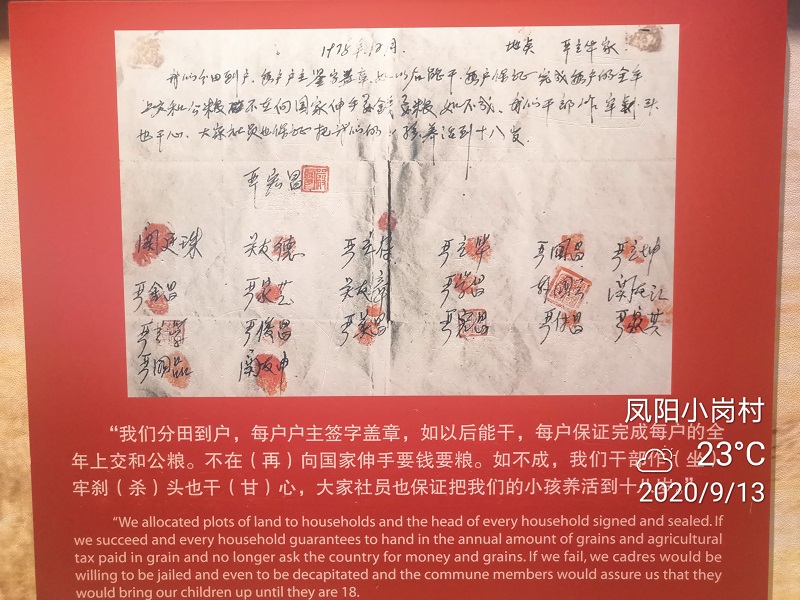 1978年12月 地点 严立华家
我们分田到户,每户户主签字盖章,如以后能干,每户保证完成每户的全年
上交和公粮,不在向国家伸手要钱要粮,如不成,我们干部作牢刹头
也干心,大家社员也保证把我们的小孩养活到十八岁
严宏昌
关廷珠 关友德 严立符 严立华 严国昌 严立坤
严金昌 严家芝 关友章 严学昌 韩国云 关友江
严立学 严俊昌 严美昌 严宏昌 严付昌 严家其
严国品 关友申
“我们分田到户,每户户主签字盖章,如以后能干,每户保证完成每户的全
年上交和公粮。不在(再)向国家伸手要钱要粮。如不成,我们干部作(坐)
牢刹(杀)头也干(甘)心,大家社员也保证把我们的小孩养活到十八岁。”
“We allocated plots of land to households and the head of every household signed and sealed. If
we succeed and every household guarantees to hand in the annual amount of grains and agricultural
tax paid in grain and no longer ask the country for money and grains. If we fail, we cadres would be
willing to be jailed and even to be decapitated and the commune members would assure us that they
would bring our children up until they are 18.
凤阳小岗村
23°C
2020/9/13